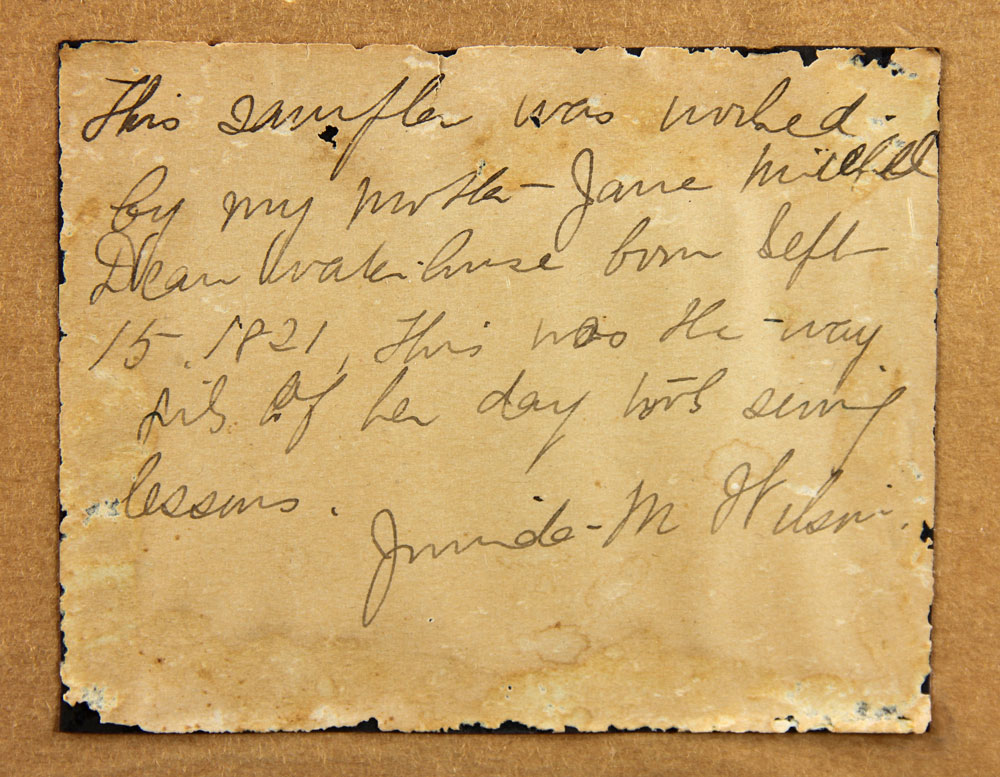 This sampler was worked
by my mother Jane Mitchell
Dean Waterhouse born Sept
15, 1821, This was the way
girls of her day took sewing
lessons.
M Wilson.